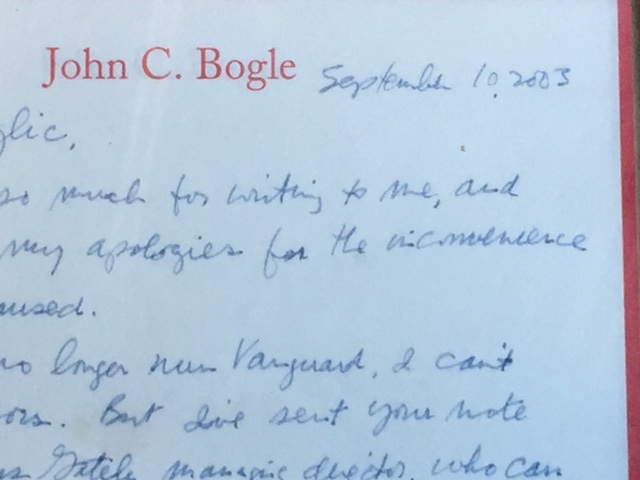 John C. Bogle
September 10, 2003
so much for writing to me, and
my apologies for the inconvenience
no longer run Vanguard, I can't
But I've sent your note
managing director, who can